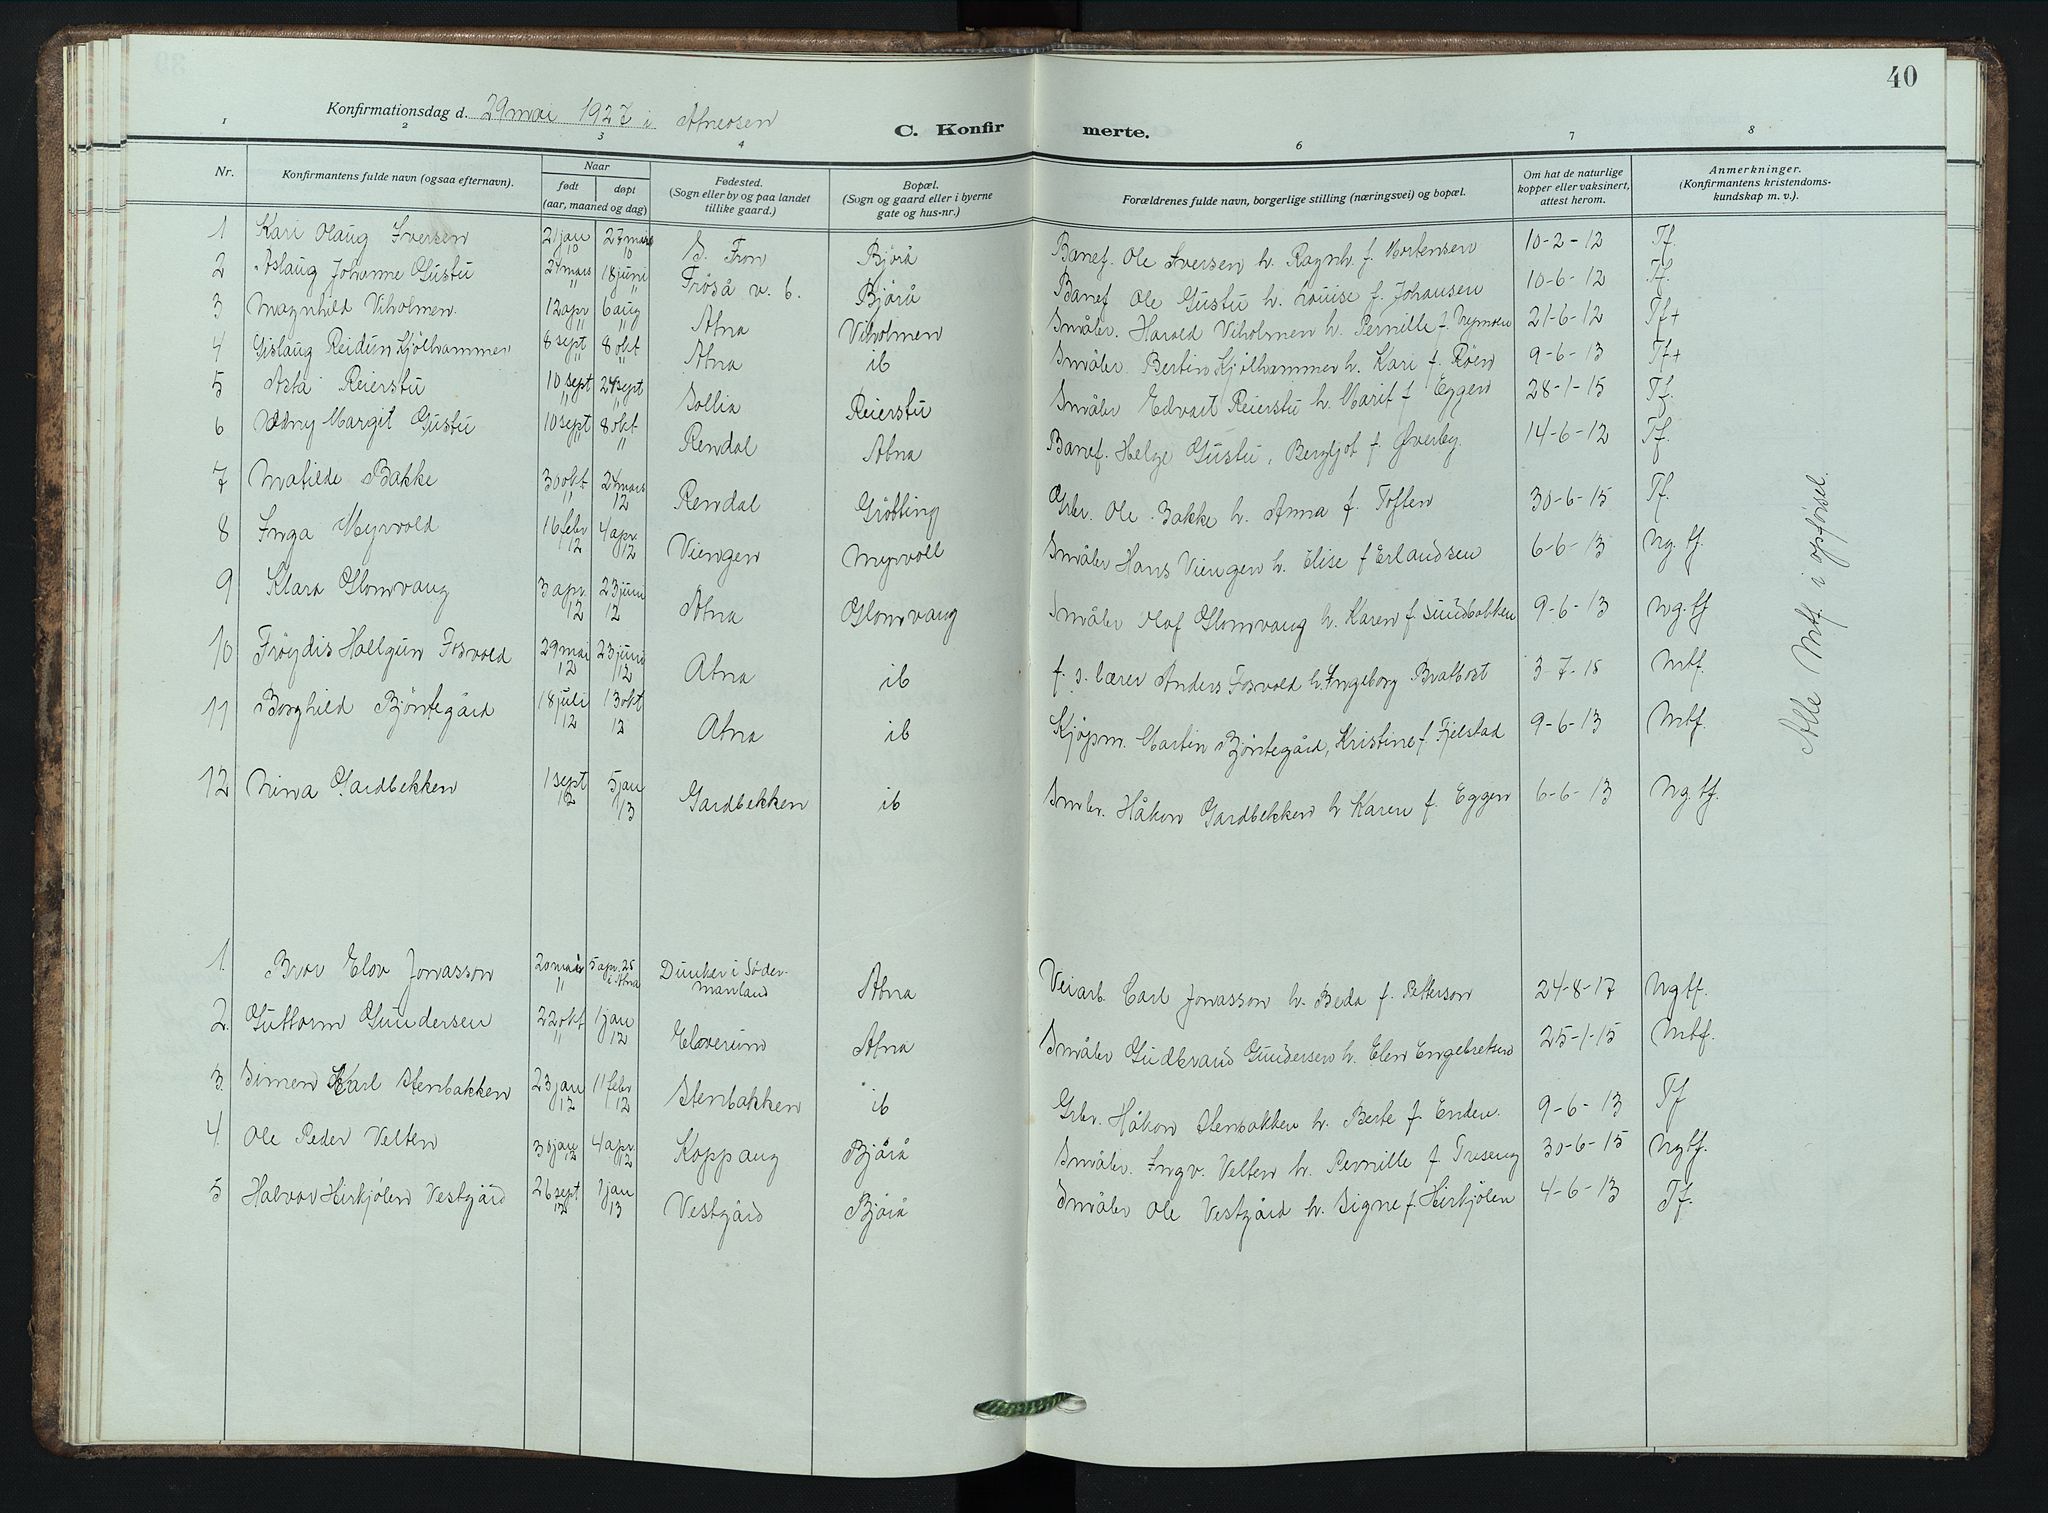 40
Konfirmationsdag d. 29 mai 1927 i Atneosen
C. Konfirmerte.
1 2 3 4 6 7 8
Nr. Konfirmantens fulde navn (ogsaa efternavn). Naar født døpt (aar, maaned og dag) Fødested. (Sogn eller by og paa landet tillike gaard.) Bopæl. (Sogn og gaard eller i byerne gate og hus-nr.) Forældrenes fulde navn, borgerlige stilling (næringsvei) og bopæl. Om hat de naturlige kopper eller vaksinert, attest herom. Anmerkninger. (Konfirmantens kristendoms-kundskap m. v.).
1 Kari Olaug Iversen 21 jan 10 27 mars 10 S. Fron Bjørå Banef. Ole Iversen h. Ragnh. f. Mortensen 10-2-12 Tf.
2 Aslaug Johanne Gustu 24 mars " 18 juni " Frøså v. b. Bjørå Banef Ole Gustu h. Louise f. Johansen 10-6-12 Tf.
3 Magnhild Viholmen 12 apr " 6 aug " Atna Viholmen Småbr. Harald Viholmen h. Pernille f. 21-6-12 Tf+
4 Gislaug Reidun Kjølhammer 8 sept 8 okt " Atna ib Småbr. Bertin Kjølhammer h. Kari f. Røen 9-6-13 Tf+
5 Asta Reierstu 10 sept " 24 sept " Sollia Reierstu Småbr Edvart Reierstu h. Marit f Eggen 28-1-15 Tf.
6 Odny Margit Gustu 10 sept " 8 okt " Rendal Atna Banef. Helge Gustu, Bergljot f Øverby. 14-6-12 Tf.
7 Matilde Bakke 30 okt " 24 mars 12 Rendal Grøtting Grbr. Ole Bakke h. Anna f. Toften 30-6-15 Tf.
8 Inga Myrvold 16 febr 12 4 apr. 12 Viengen Myrvoll Småbr Hans Viengen h. Elise f Erlandsen 6-6-13 Ng. tf.
9 Klara Glomvang 3 apr. 12 23 juni 12 Atna Glomvang Småbr Olaf Glomvang h. Karen f. Sundbakken 9-6-13 Ng. tf
10 Frøydis Hallgun Fosvold 29 mai 12 23 juni 12 Atna ib f. s. lærer Anders Fosvold h. Ingeborg Bratbost 3-7-15 Mtf.
11 Borghild Bjøntegård 18 juli 12 13 okt 12 Atna ib Kjøpm. Martin Bjøntegård, Kristine f Fjelstad 9-6-13 Mtf.
12 Nina Gardbekken 1 sept 12 5 jan 13 Gardbekken ib Smbr. Håkon Gardbekken h Karen f. Eggen 6-6-13 Ng. tf.
Alle Mtf. i opførsel.
1. Bror Elov Jonasson 20 mars " 5 apr. 25 i Atna Dunker i Söder-manland Atna Veiarb. Carl Jonasson h. Beda f. Petterson 24-8-17 Ngtf.
2. Guttorm Gundersen 22 okt " 1 jan 12 Elverum Atna Småbr Gudbrand Gundersen h. Elen Engebretsen 25-1-15 Mtf.
3. Simen Karl Stenbakken 23 jan 12 11 febr 12 Stenbakken ib Grbr. Håkon Stenbakken h. Berte f. Enden. 9-6-13 Tf
4. Ole Peder Velten 30 jan 12 4 apr. 12 Koppang Bjørå Småbr. Ingv. Velten h. Pernille f Treseng 30-6-15 Ngtf.
5 Halvor Hirkjølen Vestgård 26 sept 12 1 jan 13 Vestgård Bjørå Småbr Ole Vestgård h. Signe f. Hirkjølen 4-6-13 Tf.